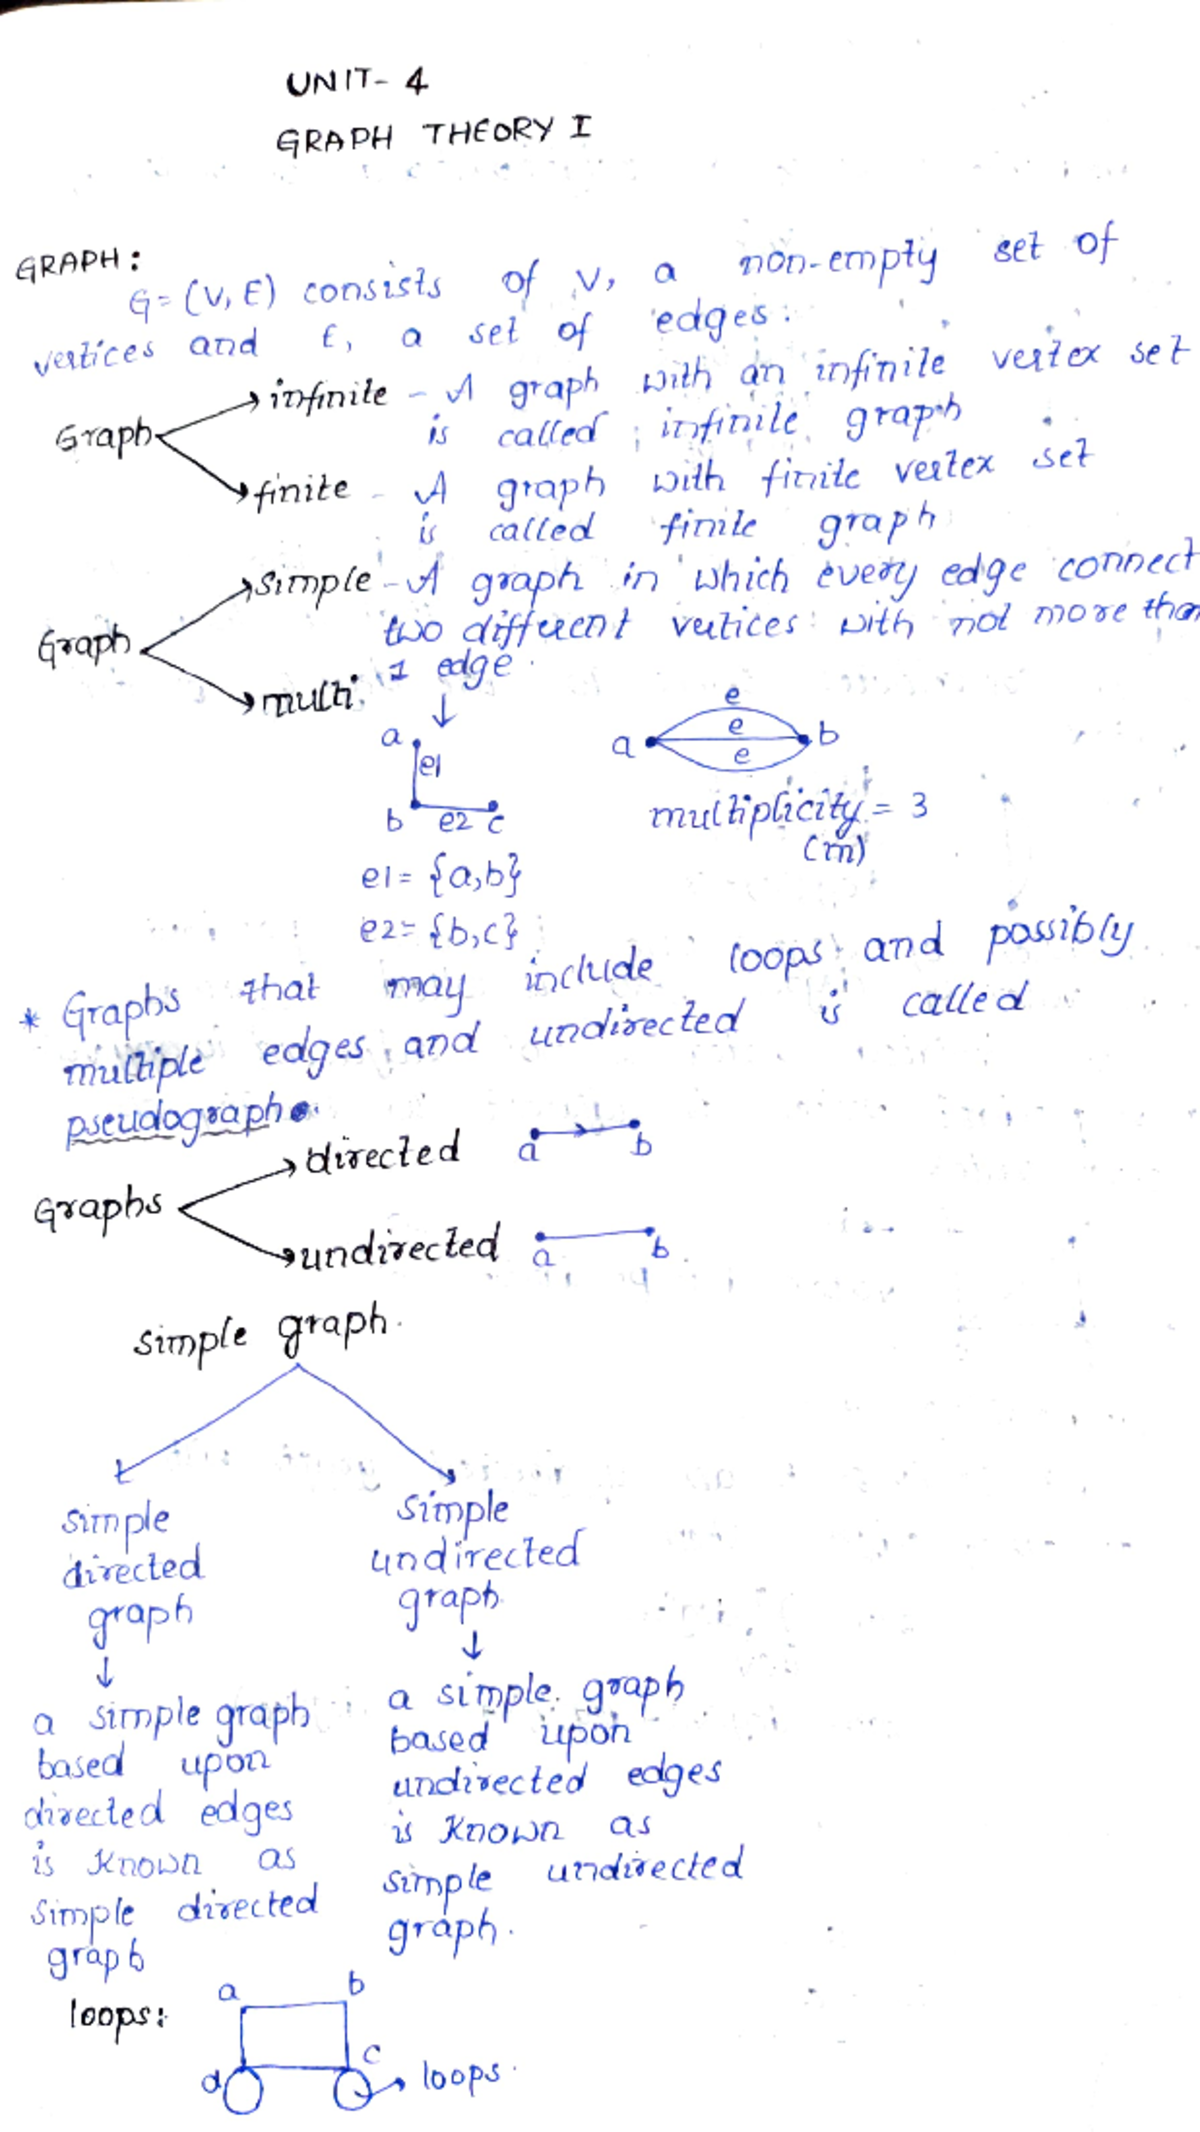 UNIT- 4
GRAPH THEORY I
GRAPH:
G=(V,E) consists of V, a non-empty set of
vertices and E, a set of edges.
Graph
infinite - A graph with an infinite vertex set
is called infinite graph
finite - A graph with finite vertex set
is called finite graph
Graph
simple - A graph in which every edge connect
two different vertices with not more than
1 edge.
multi
a
e1
b e2 c
e
e
e
a b
multiplicity = 3
(m)
e1= {a,b}
e2= {b,c}
* Graphs that may include loops and possibly
multiple edges and undirected is called
pseudograph.
Graphs
directed
a b
undirected
a b
simple graph.
simple
directed
graph
a simple graph
based upon
directed edges
is known as
simple directed
graph
simple
undirected
graph
a simple graph
based upon
undirected edges
is known as
simple undirected
graph.
loops:
a b
d c
loops.